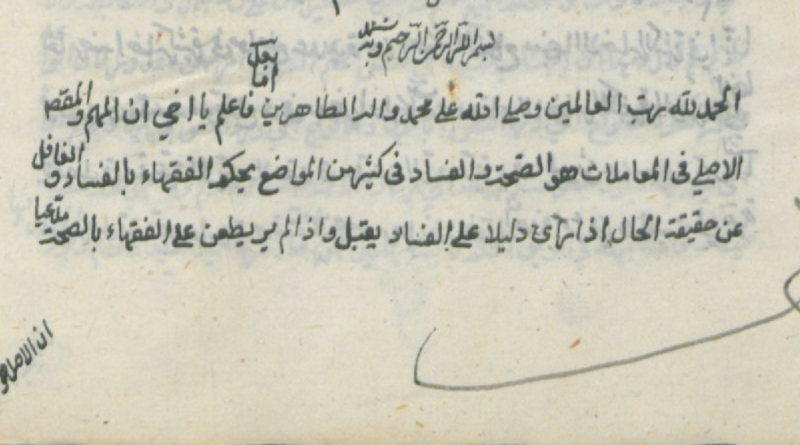 بسم الله الرحمن الرحيم وبه نستعين
اما بعد
الحمد لله رب العالمين وصلى الله على محمد واله الطاهرين فاعلم يا اخي ان المهم والمقصد
الاصلي في المعاملات هو الصحة والفساد في كثير من المواضع يحكم الفقهاء بالفساد والغافل
عن حقيقة الحال اذا راى دليلا على الفساد يقبل واذا لم ير يطعن على الفقهاء بالصحة مدعيا
ان الاصل